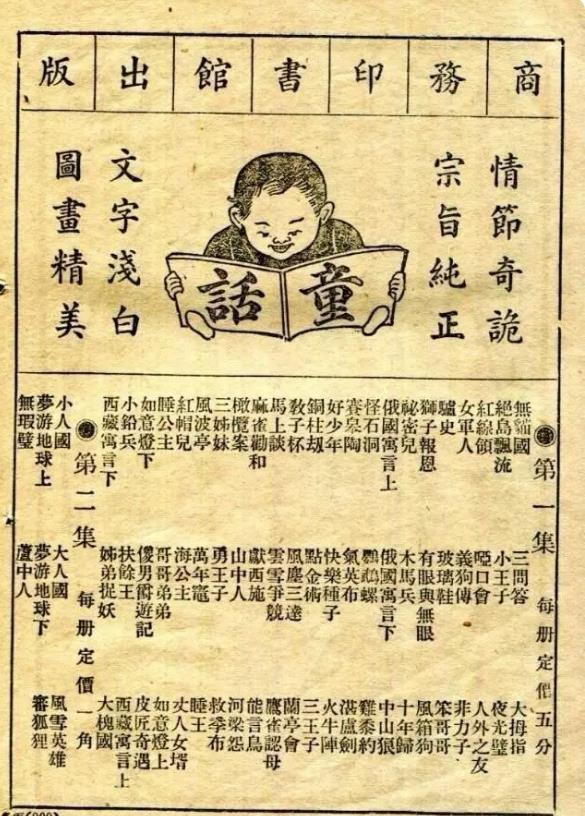 商務印書館出版
情節奇詭
宗旨純正
童話
文字淺白
圖畫精美
第一集 每册定價五分
無貓國 三問答 大拇指
絕島飄流 小王子 夜光璧
紅線領 啞口會 人外之友
女軍人 義狗傳 非力子
驢史 玻璃鞋 笨哥哥
獅子報恩 有眼與無眼 風箱狗
祕密兒 木馬兵 十年歸
俄國寓言上 俄國寓言下 中山狼
怪石洞 鸚鵡螺 雞黍約
賽皋陶 氣英布 湛盧劍
好少年 快樂種子 火牛陣
銅柱劫 點金術 三王子
教子杯 風塵三達 蘭亭會
馬上談 雲雪爭競 鷹雀認母
麻雀勸和 獻西施 能言鳥
橄欖案 山中人 河梁怨
三姊妹 勇王子 救季布
風波亭 萬年竈 睡王
紅帽兒 海公主 丈人女壻
睡公主 哥哥弟弟 如意燈上
如意燈下 傻男爵遊記 皮匠奇遇
小鉛兵 扶餘王 西藏寓言上
西藏寓言下 姊弟捉妖 大槐國
第二集 每册定價一角
小人國 大人國 風雪英雄
夢游地球上 夢游地球下 審狐狸
無瑕璧 蘆中人